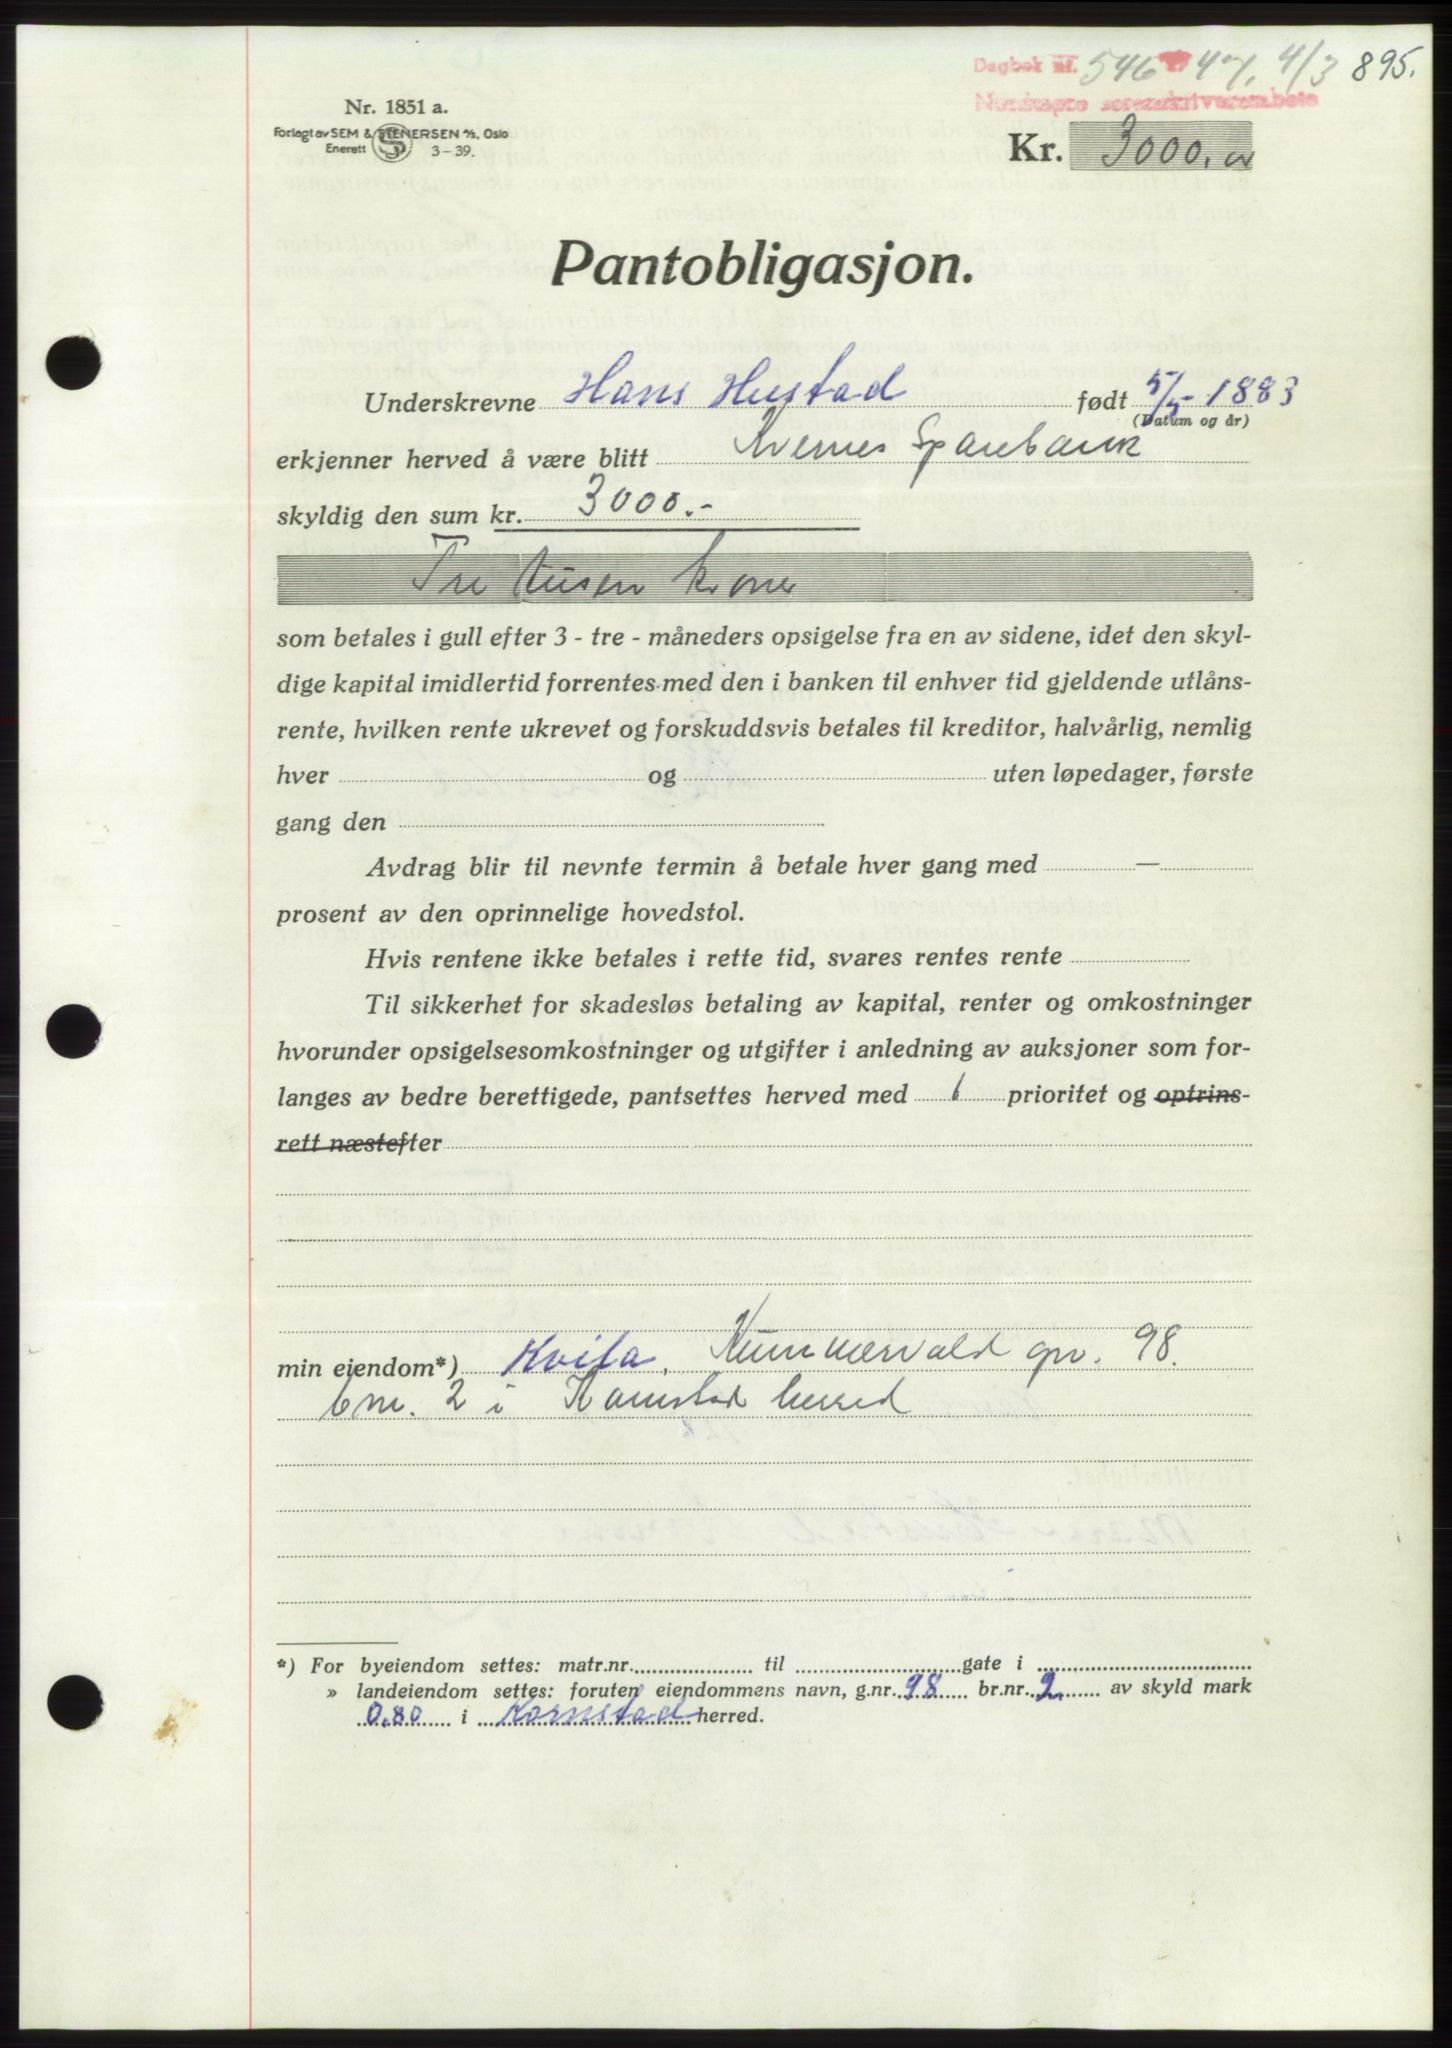 Dagbok nr. 546 1947. 4/3 895.
Nordmøre sorenskriverembete
Nr. 1851 a.
Forlagt av SEM & STENERSEN A/S, Oslo
Enerett S 3-39.
Kr. 3000.00
Pantobligasjon.
Underskrevne Hans Hustad født 5/5-1883
(Datum og år)
erkjenner herved å være blitt Kvernes Sparebank
skyldig den sum kr. 3000.-
Tre tusen kroner
som betales i gull efter 3 - tre - måneders opsigelse fra en av sidene, idet den skyl-
dige kapital imidlertid forrentes med den i banken til enhver tid gjeldende utlåns-
rente, hvilken rente ukrevet og forskuddsvis betales til kreditor, halvårlig, nemlig
hver og uten løpedager, første
gang den
Avdrag blir til nevnte termin å betale hver gang med —
prosent av den oprinnelige hovedstol.
Hvis rentene ikke betales i rette tid, svares rentes rente
Til sikkerhet for skadesløs betaling av kapital, renter og omkostninger
hvorunder opsigelsesomkostninger og utgifter i anledning av auksjoner som for-
langes av bedre berettigede, pantsettes herved med 1 prioritet og optrins-
rett næstefter
min eiendom*) Kvila, gnr. 98.
bnr. 2 i Kornstad herred
*) For byeiendom settes: matr.nr. til gate i
» landeiendom settes: foruten eiendommens navn, g.nr. 98 br.nr. 2 av skyld mark
0,80 i Kornstad herred.